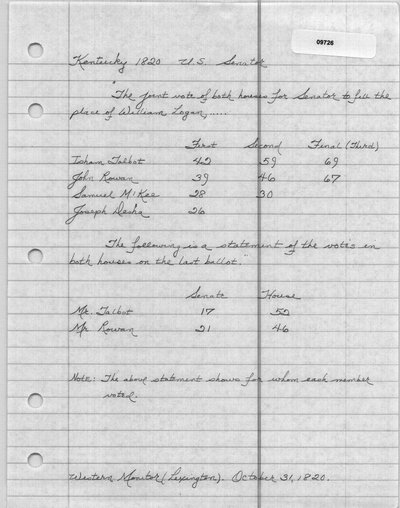 09726
Kentucky 1820 U.S. Senator
"The joint vote of both houses for Senator to fill the
place of William Logan,.....
First Second Final (Third)
Isham Talbot 42 59 69
John Rowan 39 46 67
Samuel McKee 28 30
Joseph Desha 26
The following is a statement of the votes in
both houses on the last ballot."
Senate House
Mr. Talbot 17 52
Mr Rowan 21 46
Note: The above statement shows for whom each member
voted.
Western Monitor (Lexington). October 31, 1820.